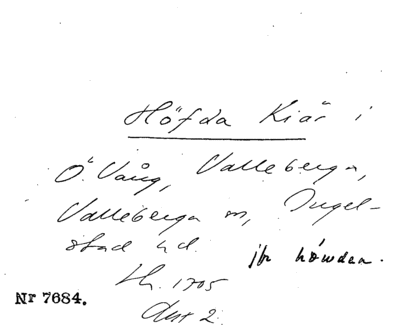 Höfda Kiär i
Ö. Vång, Valleberga,
Valleberga sn, Ingel-
stad hd.
jfr höwdan.
Lh. 1705
Akt 2.
Nr 7684.